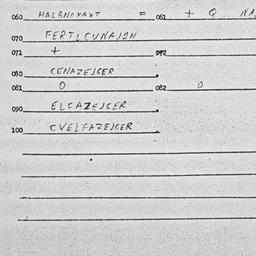 060 HALBNOXAXT = 061 + Q
070 FERTLCUNAJON
071 + 072
080 CENAZEJGER
081 0 082 0
090 ELFAZEJGER
100 CVELFAZEJGER